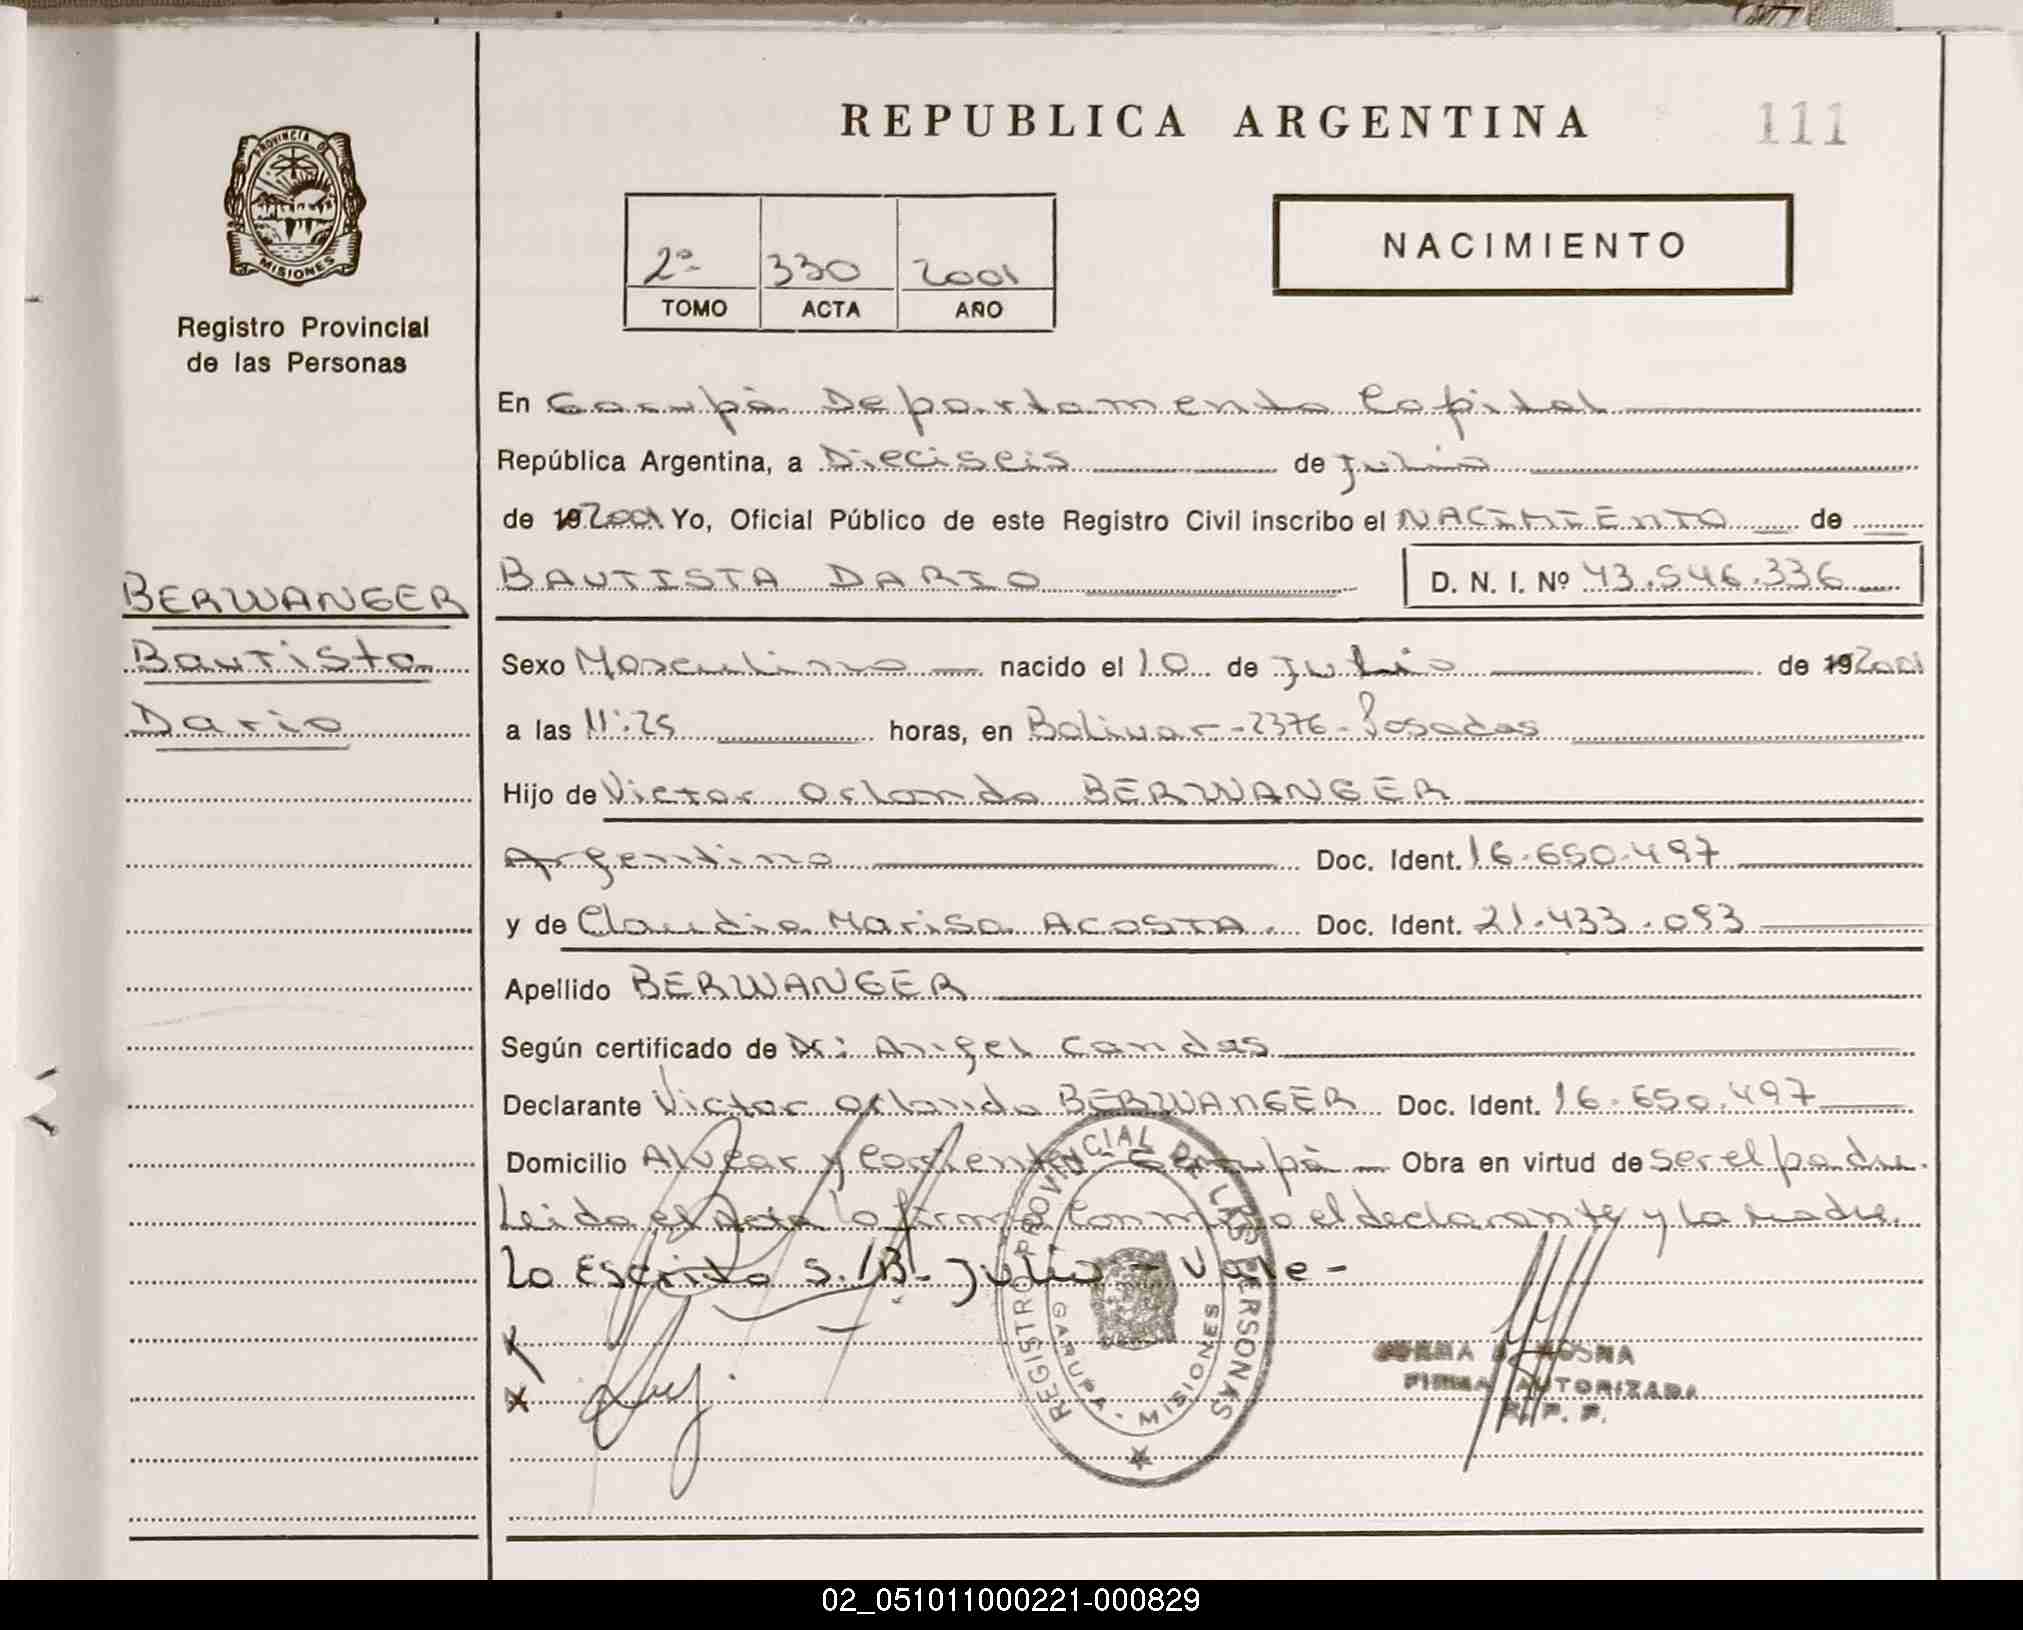 REPUBLICA ARGENTINA
111
PROVINCIA DE
MISIONES
Registro Provincial
de las Personas
2º 330 2001
TOMO ACTA AÑO
NACIMIENTO
En Garupá Departamento Capital
República Argentina, a Dieciseis de Julio
de 19 2001 Yo, Oficial Público de este Registro Civil inscribo el NACIMIENTO de
BAUTISTA DARIO D. N. I. Nº 43.546.336
BERWANGER
Bautista
Dario
Sexo Masculino nacido el 10 de Julio de 19 2001
a las 11:25 horas, en Bolivar - 2376 - Posadas
Hijo de Victor Orlando BERWANGER
Argentino Doc. Ident. 16.650.497
y de Claudia Marisa ACOSTA. Doc. Ident. 21.433.093
Apellido BERWANGER
Según certificado de Dr: Angel Candas
Declarante Victor Orlando BERWANGER Doc. Ident. 16.650.497
Domicilio Alvear y Corrientes - Garupá Obra en virtud de ser el padre.
Leida el Acta la firma conmigo el declarante y la madre.
Lo Escrito S./B. Julio - Vale -
REGISTRO PROVINCIAL DE LAS PERSONAS
GARUPA - MISIONES
FIRMA AUTORIZADA
R. P. P.
02_051011000221-000829